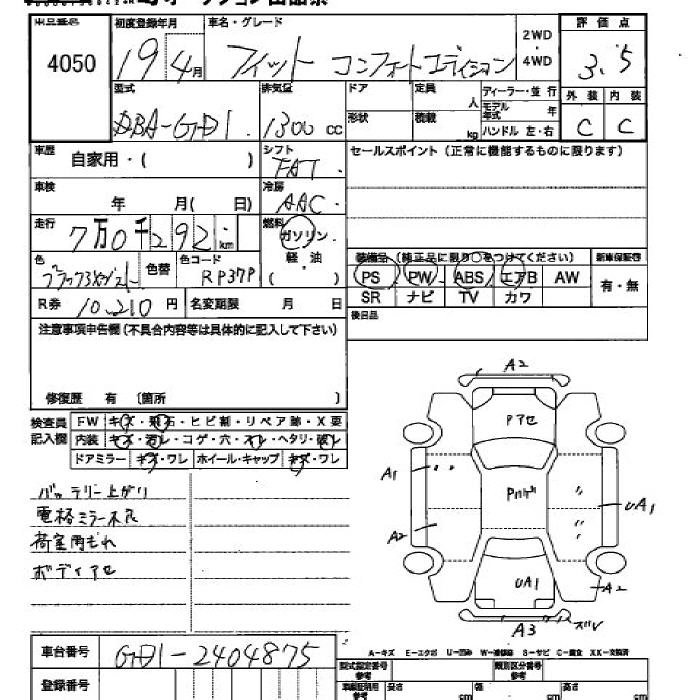 4050
初度登録年月
19 4月
車名・グレード
フィット コンフォートエディション
2WD
・
4WD
評価点
3.5
外装 内装
C C
型式
DBA-GD1
排気量
1300 cc
ドア
定員
人
形状
積載
kg
ディーラー・並行
モデル年式 年
ハンドル 左・右
車歴
自家用・( )
シフト
FAT
セールスポイント(正常に機能するものに限ります)
車検
年 月( 日)
冷房
AAC
走行
7万0千292 km
燃料
ガソリン
軽・油
( )
色
色替
色コード
RP37P
装備品(純正品に限り○をつけてください)
新車保証書
PS PW ABS エアB AW
有・無
SR ナビ TV カワ
R券 10,210 円
名変期限 月 日
後日品
注意事項申告欄(不具合内容等は具体的に記入して下さい)
修復歴 有 〔箇所 〕
検査員
記入欄
FW キズ・飛石・ヒビ割・リペア跡・X要
内装 キズ・汚レ・コゲ・穴・スレ・ヘタリ・破レ
ドアミラー キズ・ワレ ホイール・キャップ キズ・ワレ
バッテリー上がり
電格ミラー不良
ボディアセ
A2
Pアセ
A1
UA1
A2
UA1
A2
A3
車台番号 GD1-2404875
A-キズ E-エクボ U-凹み W-補修跡 S-サビ C-腐食 XX-交換済
登録番号
型式指定番号
参考
類別区分番号
参考
長さ cm
幅 cm
高さ cm